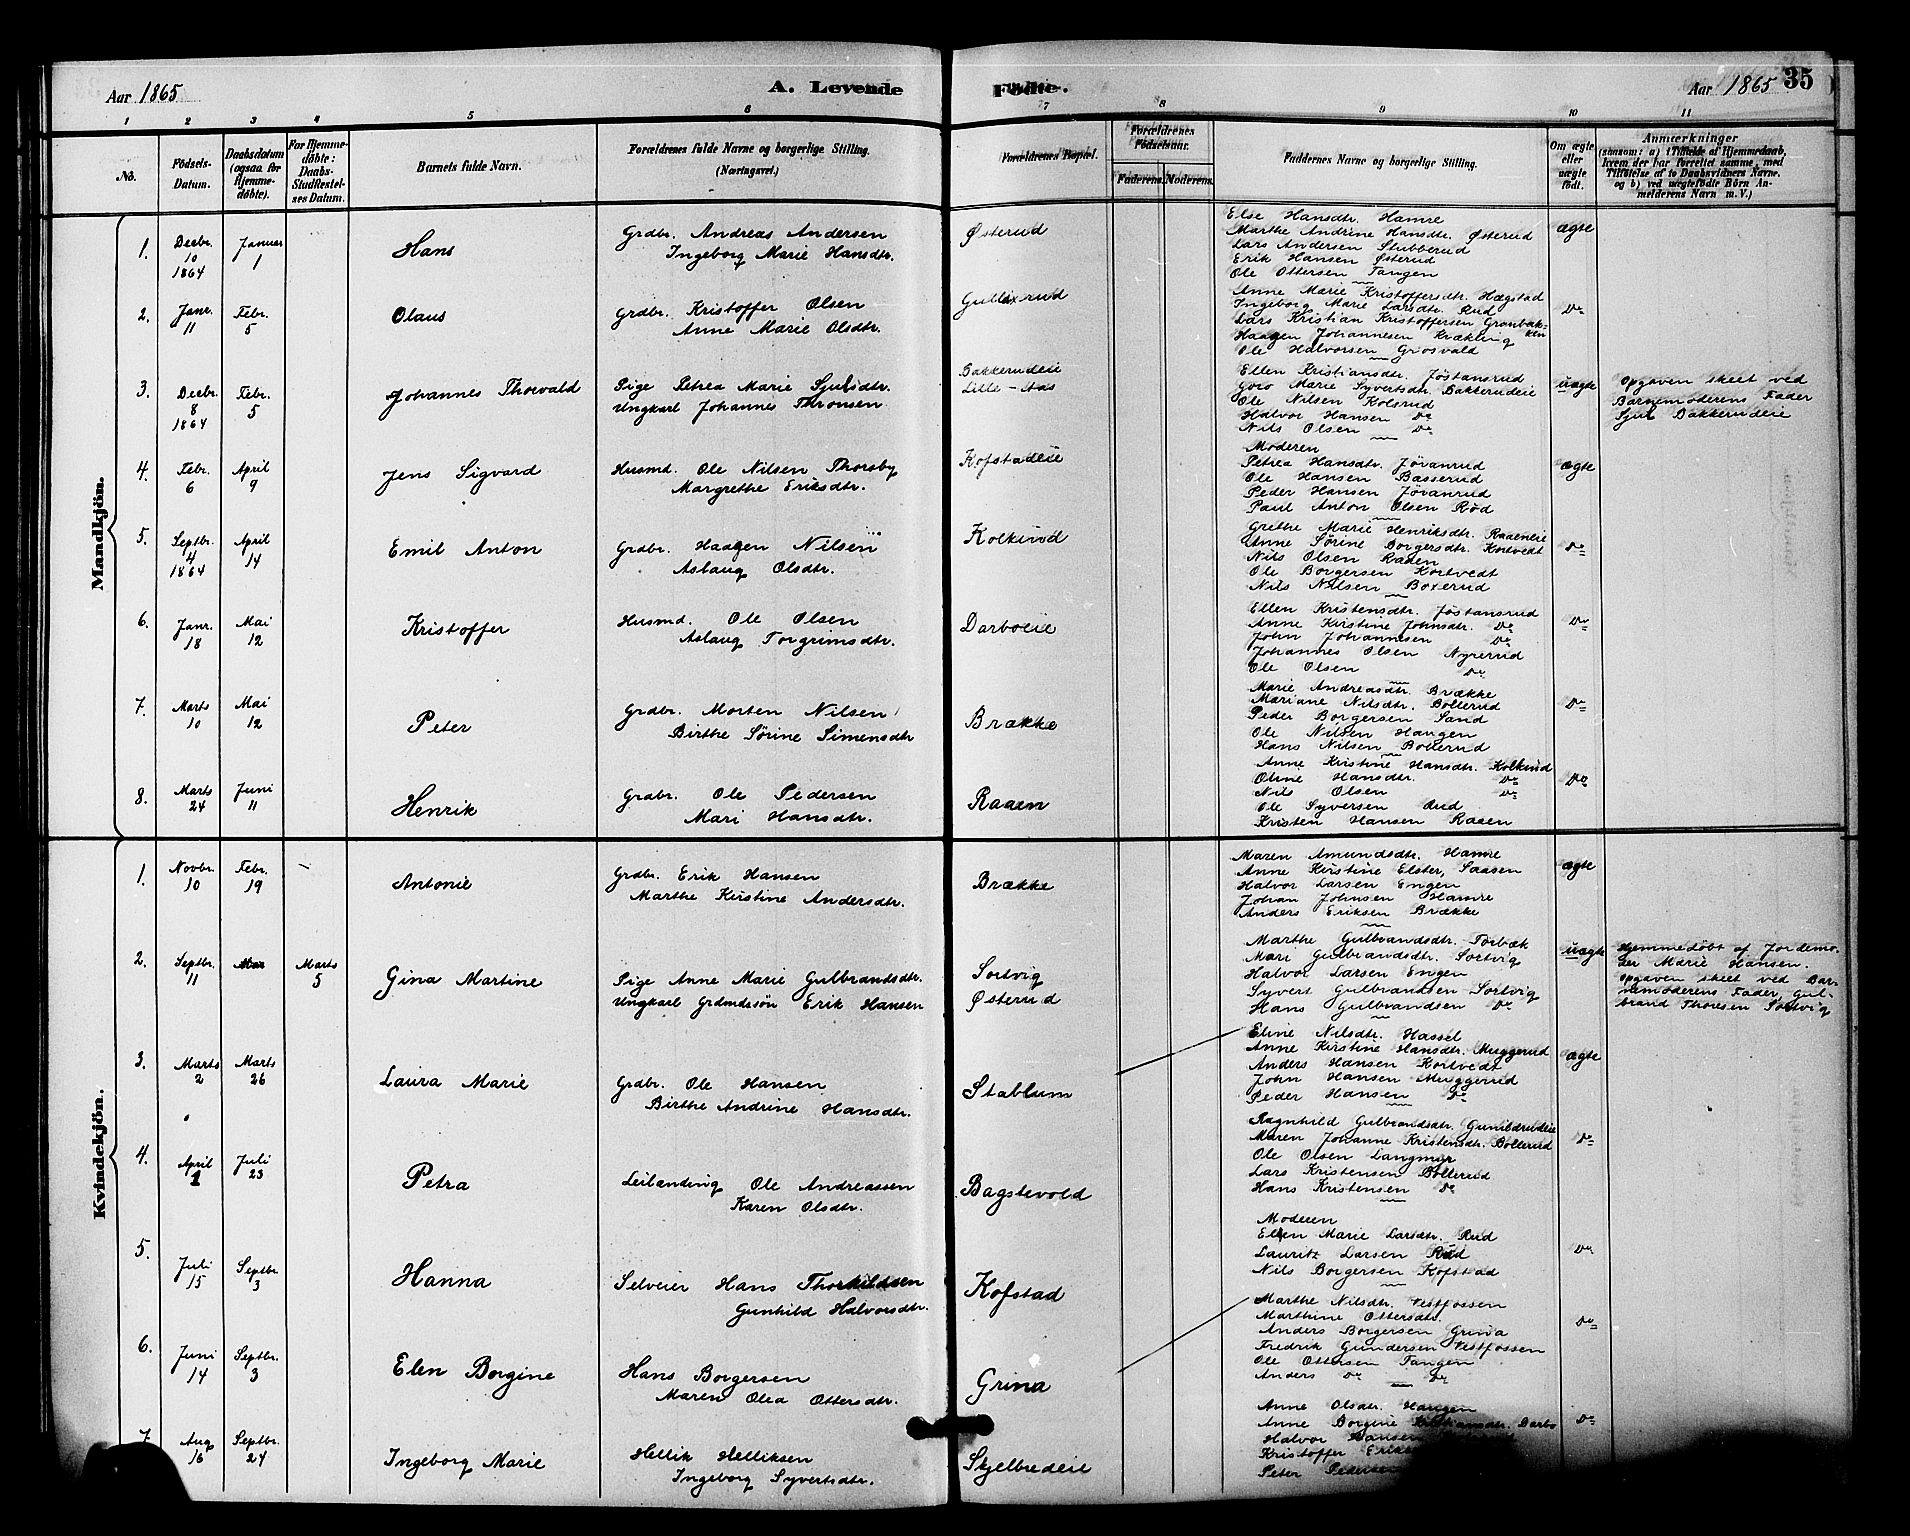 Aar 1865
A. Levende
Fødte.
Aar 1865 35
1 2 3 4 5 6 7 8 9 10 11
No.
Fødsels-
Datum.
Daabsdatum
(ogsaa for
Hjemme-
døbte).
For Hjemme-
døbte:
Daabs-
Stadfæstel-
ses Datum.
Barnets fulde Navn.
Forældrenes fulde Navne og borgerlige Stilling.
(Næringsvei.)
Forældrenes Bopæl.
Forældrenes
Fødselsaar.
Faderens. Moderens.
Faddernes Navne og borgerlige Stilling.
Om ægte
eller
uægte
født.
Anmærkninger
(saasom: a) i Tilfælde af Hjemmedaab,
hvem der har forrettet samme, med
Tilføielse af to Daabsvidners Navne.
og b) ved uægtefødte Børn An-
melderens Navn m. V.)
Mandkjön.
1.
Decbr.
10
1864
Januar
1
Hans
Grdbr. Andreas Andersen
Ingeborg Marie Hansdtr.
Østerud
Else Hansdtr. Hamre
Marthe Andrine Hansdtr. Østerud
Lars Andersen Stubberud
Erik Hansen Østerud
Ole Ottersen Tangen
ægte
2.
Janr.
11
Febr.
5
Olaus
Grdbr. Kristoffer Olsen
Anne Marie Olsdtr.
Gullixrud
Anne Marie Kristoffersdtr. Hægstad
Ingeborg Marie Larsdtr. Rud
Lars Kristian Kristoffersen Grønbæk-
ken
Haagen Johannesen Krækling
Ole Halvorsen Grosvald
Do
3.
Decbr.
8
1864
Febr.
5
Johannes Thorvald
Pige Petrea Marie Sjulsdtr.
Ungkarl Johannes Thronsen
Bakkerudeie
Lille-Aas
Ellen Kristiansdtr. Jøstansrud
Goro Marie Syvertsdtr. Bakkerudeie
Ole Nilsen Kolsrud
Halvor Hansen Do
Nils Olsen Do
uægte
Opgaven skeet ved
Barnemoderens Fader
Sjul Bakkerudeie
4.
Febr.
6
April
9
Jens Sigvard
Husmd. Ole Nilsen Thorsby
Margrethe Eriksdtr.
Kofstadeie
Moderen
Petrea Hansdtr. Jøvanrud
Ole Hansen Basserud
Peder Hansen Jøvanrud
Paul Anton Olsen Rød
ægte
5.
Septbr.
4
1864
April
14
Emil Anton
Grdbr. Haagen Nilsen
Aslaug Olsdtr.
Kolkinrd
Grethe Marie Henriksdtr. Raaeneie
Anne Sørine Borgersdtr. Kortvedt
Nils Olsen Raaen
Ole Borgersen Kortvedt
Nils Nilsen Boxerud
Do
6.
Janr.
18
Mai
12
Kristoffer
Husmd. Ole Olsen
Aslaug Torgrimsdtr.
Darboeie
Ellen Kristensdtr. Jøstansrud
Anne Kristine Johnsdtr. Do
John Johannesen Do
Johannes Olsen Nyrerud
Ole Olsen Do
Do
7.
Marts
10
Mai
12
Peter
Grdbr. Morten Nilsen
Birthe Sørine Simensdtr
Brække
Marie Andreasdtr. Brække
Mariane Nilsdtr. Bollerud
Peder Borgersen Sand
Ole Nilsen Haugen
Hans Nilsen Bollerud
Do
8.
Marts
24
Juni
11
Henrik
Grdbr. Ole Pedersen
Mari Hansdtr.
Raaen
Anne Kristine Hansdtr. Kolkinrd
Oline Hansdtr. Do
Nils Olsen Do
Ole Syversen Aud
Kristen Hansen Raaen
Do
Kvindekjön.
1.
Novbr.
10
Febr.
19
Antonie
Grdbr. Erik Hansen
Marthe Kirstine Andersdtr.
Brække
Maren Amundsdtr. Hamre
Anne Kirstine Elster, Saasen
Halvor Larsen Engen
Johan Johnsen Hamre
Anders Eriksen Brække
ægte
2.
Septbr.
11
Marts
5
Gina Martine
Pige Anne Marie Gulbrandsdtr.
Ungkarl Grdmdssøn Erik Hansen
Sortvig
Østerud
Marthe Gulbrandsdtr. Torbæk
Mari Gulbrandsdtr. Sortvig
Halvor Larsen Engen
Syvert Gulbrandsen Sortvig
Hans Gulbrandsen Do
uægte
Hjemmedøbt af Jordemo-
der Marie Hansen.
Opgaven skeet ved Bar-
nemoderens Fader, Gul-
brand Thoresen Sortvig
3.
Marts
2
Marts
26
Laura Marie
Grdbr. Ole Hansen
Birthe Andrine Hansdtr.
Stablum
Eline Nilsdtr. Hassel
Anne Kirstine Hansdtr. Muggerud
Anders Hansen Kortvedt
John Hansen Muggerud
Peder Hansen Do
ægte
4.
April
1
Juli
23
Petra
Leilænding Ole Andreassen
Karen Olsdtr.
Bagstevold
Ragnhild Gulbrandsdtr. Gunildrudeie
Maren Johanne Kristensdtr. Bollerud
Ole Olsen Langmyr
Lars Kristensen Bollerud
Hans Kristensen Do
Do
5.
Juli
15
Septbr.
3
Hanna
Selveier Hans Thorkildsen
Gunhild Halvorsdtr.
Kofstad
Moderen
Ellen Marie Larsdtr. Rud
Lauritz Larsen Rud
Nils Borgersen Kofstad
Do
6.
Juni
14
Septbr.
3
Elen Borgine
Hans Borgersen
Maren Olea Ottersdtr.
Grina
Marthe Nilsdtr. Vestfossen
Marthine Ottersdtr.
Anders Borgersen Grina
Fredrik Gundersen Vestfossen
Ole Ottersen Tangen
Anders Do Do
Do
7.
Aug
16
Septbr.
24
Ingeborg Marie
Hellik Helliksen
Ingeborg Syvertsdtr.
Skjelbredeie
Anne Olsdtr. Haugen
Anne Borgine Kristiansdtr. Darbo
Halvor Hansen
Kristoffer Erik
Peter Pedersen
Do